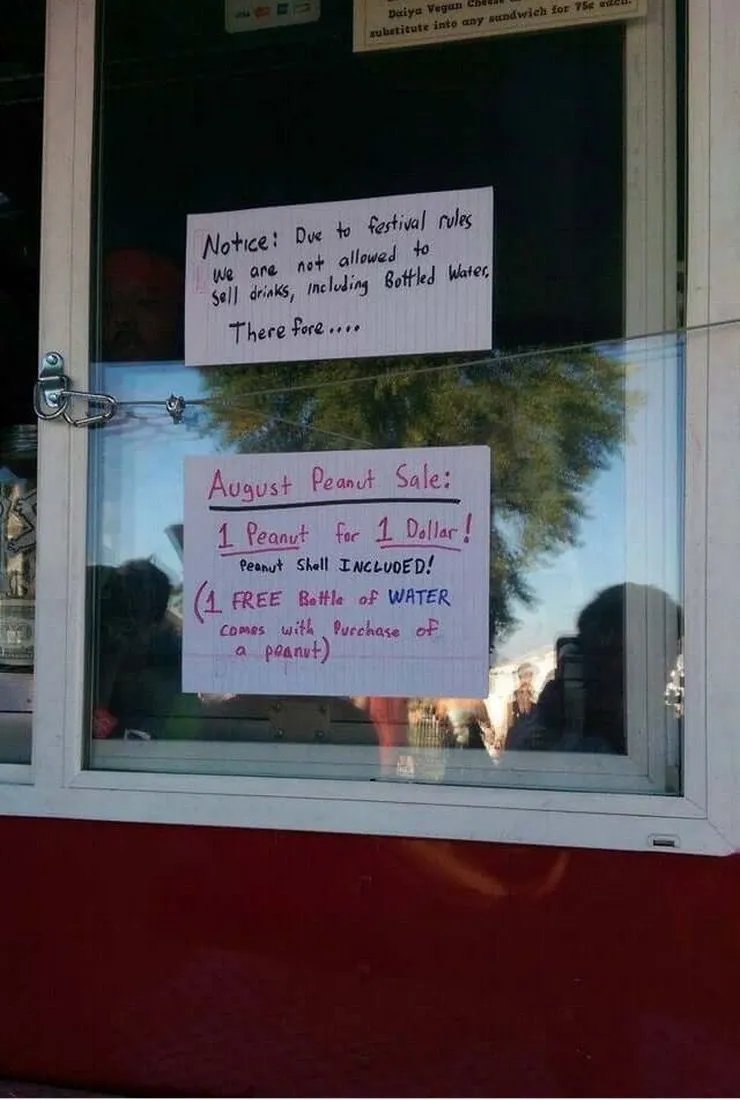 Daiya Vegan Cheese
substitute into any sandwich for 75¢ each.
Notice: Due to festival rules
we are not allowed to
sell drinks, including Bottled Water.
Therefore....
August Peanut Sale:
1 Peanut for 1 Dollar!
Peanut Shell INCLUDED!
(1 FREE Bottle of WATER
comes with Purchase of
a peanut)